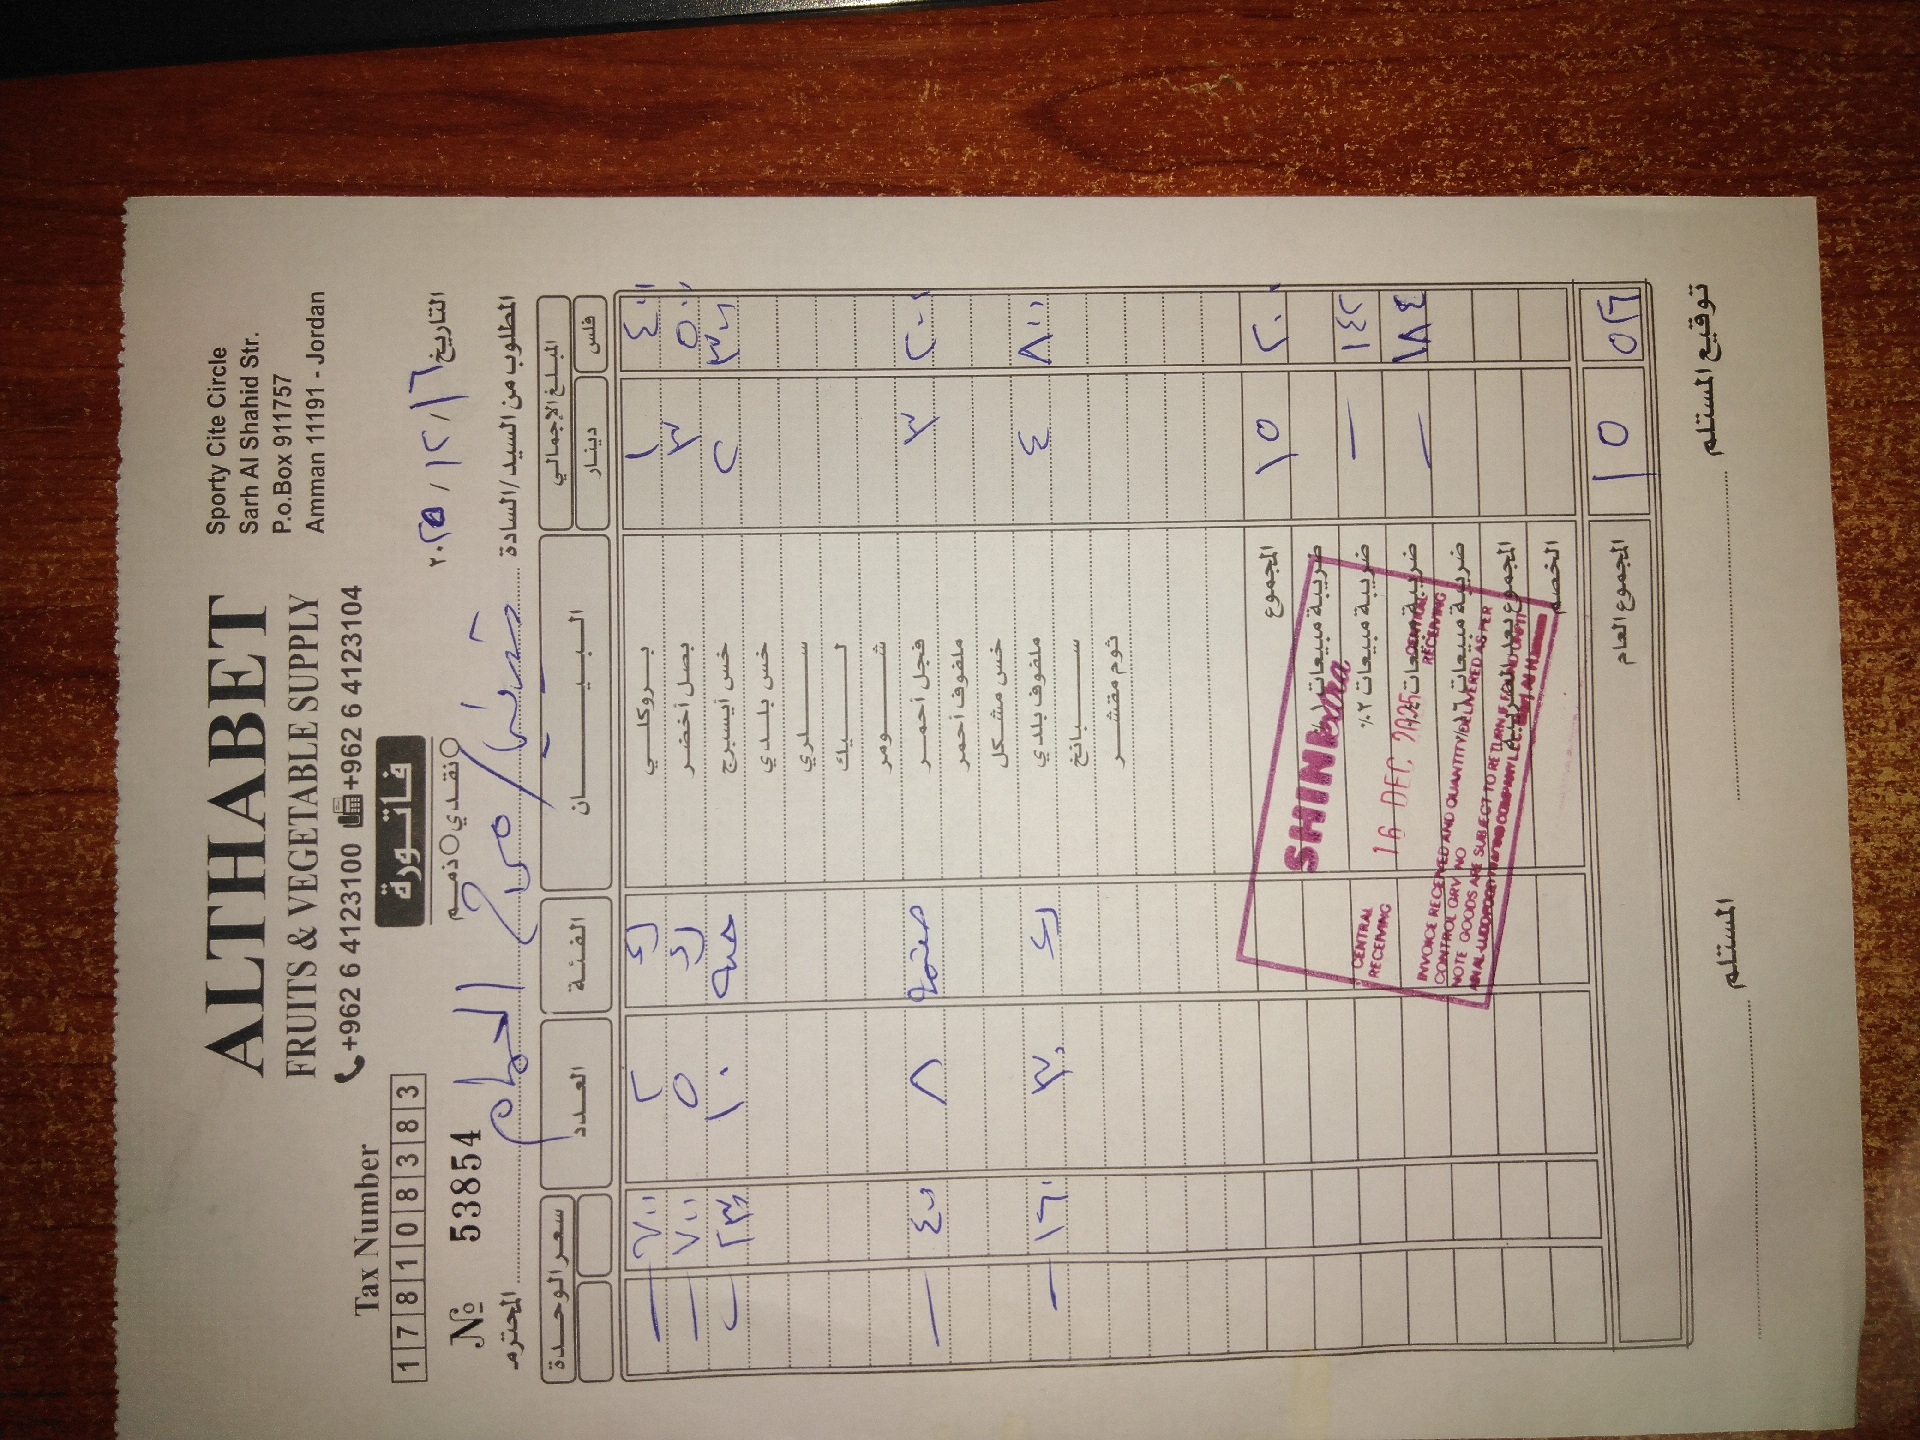 ALTHABET
FRUITS & VEGETABLE SUPPLY
+962 6 4123100 +962 6 4123104
Sporty Cite Circle
Sarh Al Shahid Str.
P.o.Box 911757
Amman 11191 - Jordan
Tax Number
178108383
فاتورة
نقدي ذمم
№ 53854
التاريخ ١٦ / ١٢ / ٢٠٢٥
المطلوب من السيد/السادة المحترم
المبلغ الإجمالي البيــــان الفئة العدد سعر الوحدة
دينار فلس
١ ٤٠٠ بروكلي ك ٢ — ٧٠٠
٣ ٥٠٠ بصل أخضر ك ٥ — ٧٠٠
٢ ٣٠٠ خس أيسبرج حبه ١٠ ٢٣٠
خس بلدي
سلري
ليك
شومر
٣ ٢٠٠ فجل أحمر ٨ — ٤٠٠
ملفوف أحمر
خس مشكل
٤ ٨٠٠ ملفوف بلدي ك ٣٠ — ١٦٠
سبانخ
ثوم مقشر
المجموع ١٥ ٢٠٠
ضريبة مبيعات
ضريبة مبيعات ٢٪ — ١٤٢
ضريبة مبيعات — ١٨٤
ضريبة مبيعات
المجموع بعد الضريبة
الخصم
المجموع العام ١٥ ٥٢٦
CENTRAL RECEIVING
16 DEC 2025
CENTRAL RECEIVING
INVOICE RECEIVED AND QUANTITY DELIVERED AS PER
CONTROL QRV NO
NOTE GOODS ARE SUBJECT TO RETURN IF FOUND UNFIT
المستلم توقيع المستلم